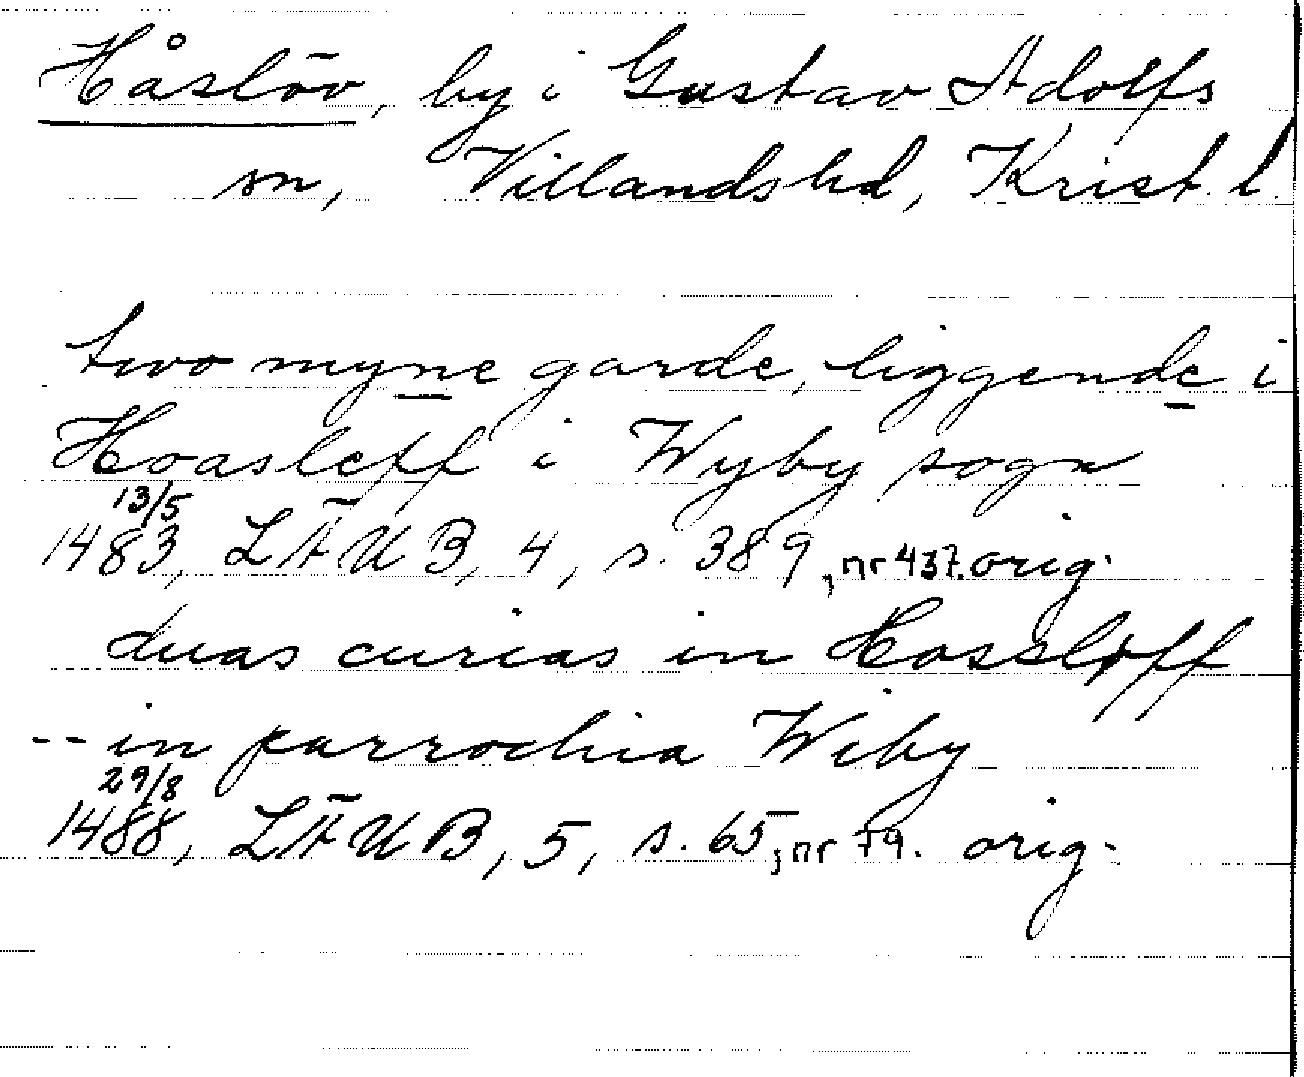 Håslöv, by i Gustav Adolfs
sn, Villands hd, Krist. l.
two myne garde, liggende i
Hoasleff i Wyby sogn
13/5
1483, LÄUB, 4, s. 389, nr 437. orig.
duas curias in Hossloff
-- in parrochia Wiby
29/8
1488, LÄUB, 5, s. 65, nr 79. orig.